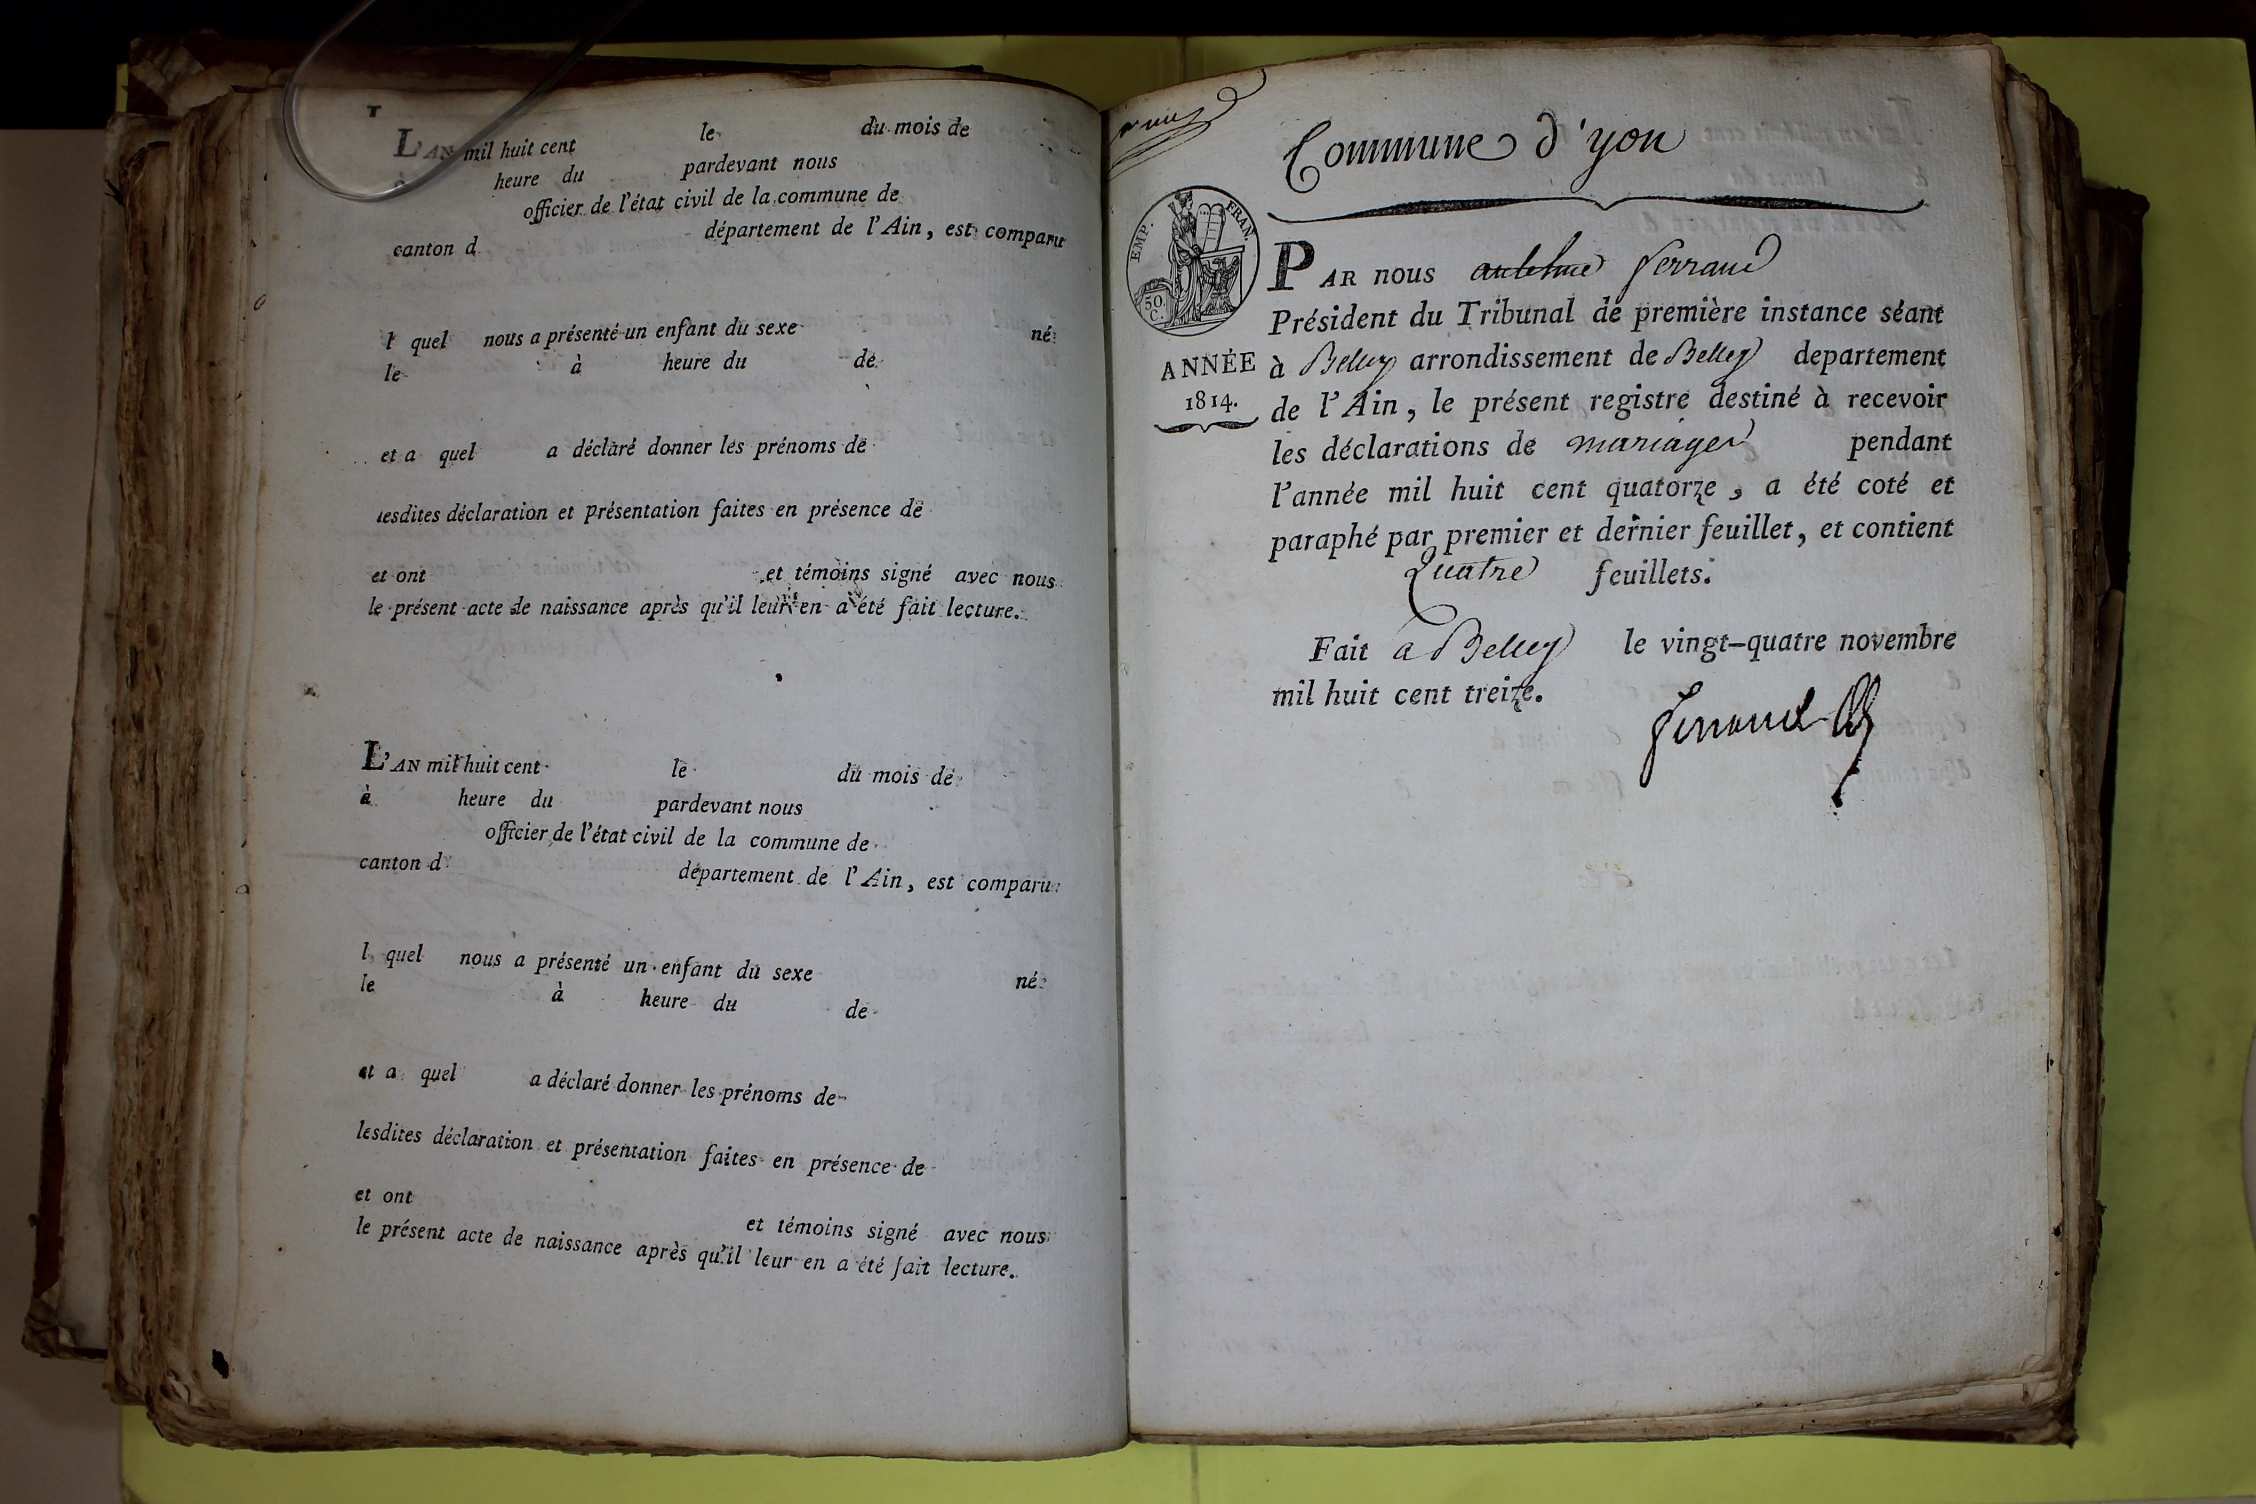 L'AN mil huit cent le du mois de
à heure du pardevant nous
officier de l'état civil de la commune de
canton d département de l'Ain, est comparu
l quel nous a présenté un enfant du sexe né
le à heure du de
et a quel a déclaré donner les prénoms de
lesdites déclaration et présentation faites en présence de
et ont et témoins signé avec nous
le présent acte de naissance après qu'il leur en a été fait lecture.
L'AN mil huit cent le du mois de
à heure du pardevant nous
officier de l'état civil de la commune de
canton d département de l'Ain, est comparu
l quel nous a présenté un enfant du sexe né
le à heure du de
et a quel a déclaré donner les prénoms de
lesdites déclaration et présentation faites en présence de
et ont et témoins signé avec nous
le présent acte de naissance après qu'il leur en a été fait lecture.
Commune d'yon
EMP. FRAN.
50.
C.
ANNÉE
1814.
PAR nous anthelme ferrand
Président du Tribunal de première instance séant
à Belley arrondissement de Belley departement
de l'Ain, le présent registre destiné à recevoir
les déclarations de mariages pendant
l'année mil huit cent quatorze, a été coté et
paraphé par premier et dernier feuillet, et contient
Quatre feuillets.
Fait a Belley le vingt-quatre novembre
mil huit cent treize.
ferrand